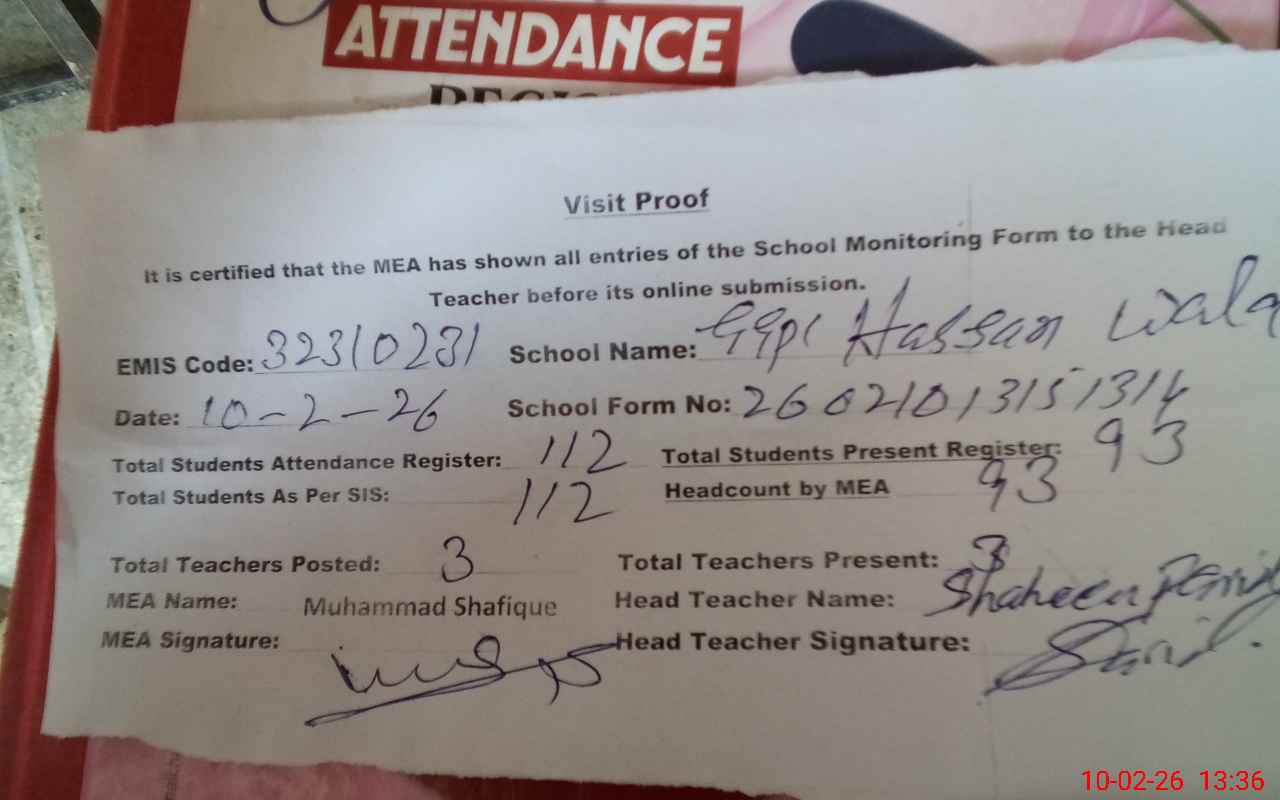 ATTENDANCE
Visit Proof
It is certified that the MEA has shown all entries of the School Monitoring Form to the Head
Teacher before its online submission.
EMIS Code: 32310231 School Name: GGPS Hassan Wala
Date: 10-2-26 School Form No: 26021013151314
Total Students Attendance Register: 112 Total Students Present Register: 93
Total Students As Per SIS: 112 Headcount by MEA 93
Total Teachers Posted: 3 Total Teachers Present: 3
MEA Name: Muhammad Shafique Head Teacher Name: Shaheen
MEA Signature: Head Teacher Signature:
10-02-26 13:36